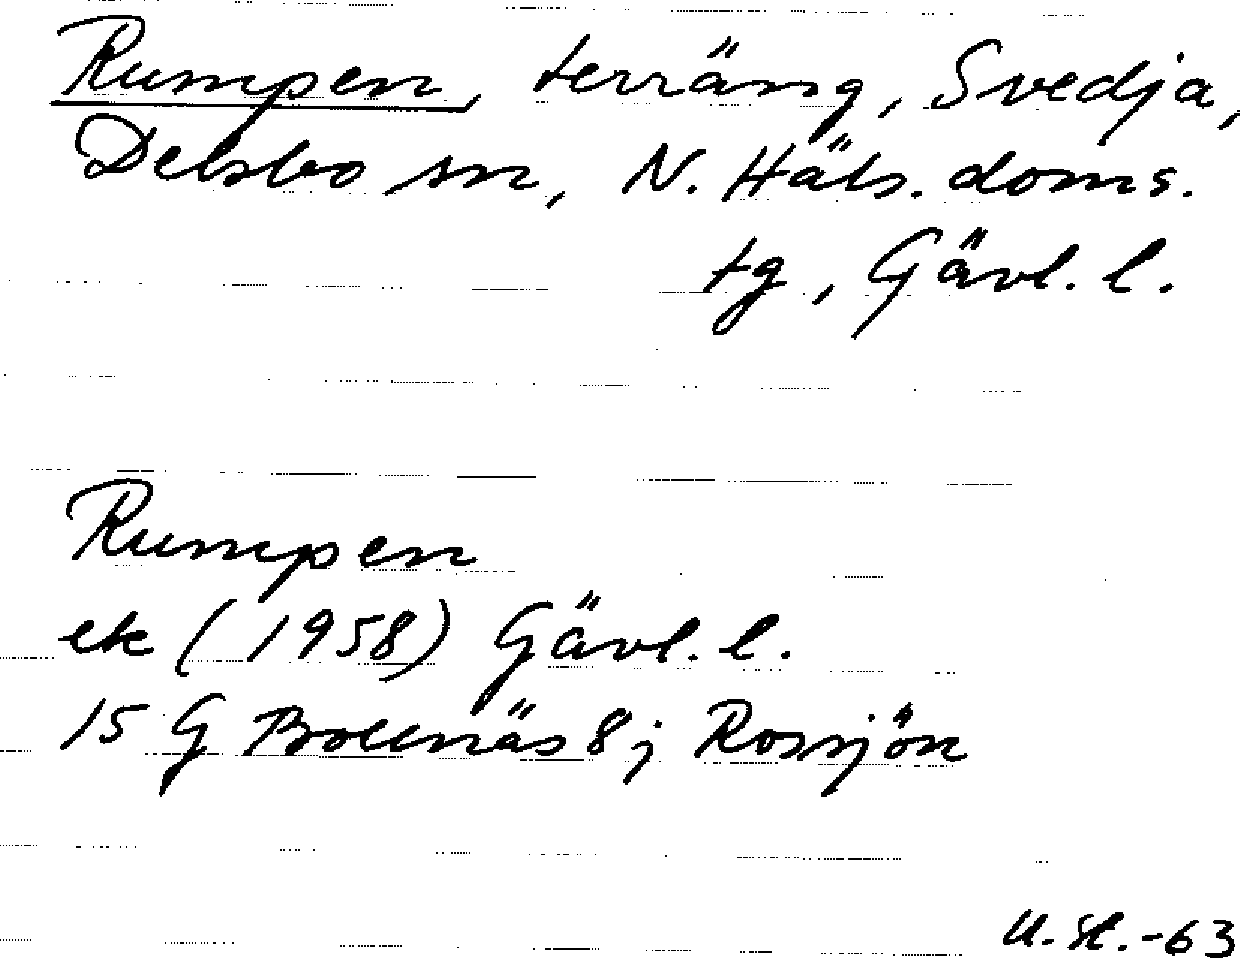 Rumpen, terräng, Svedja,
Delsbo sn, N. Häls. doms.
tg, Gävl. l.
Rumpen
ek (1958) Gävl. l.
15 G Bollnäs 8 j Rossjön
U. H. -63